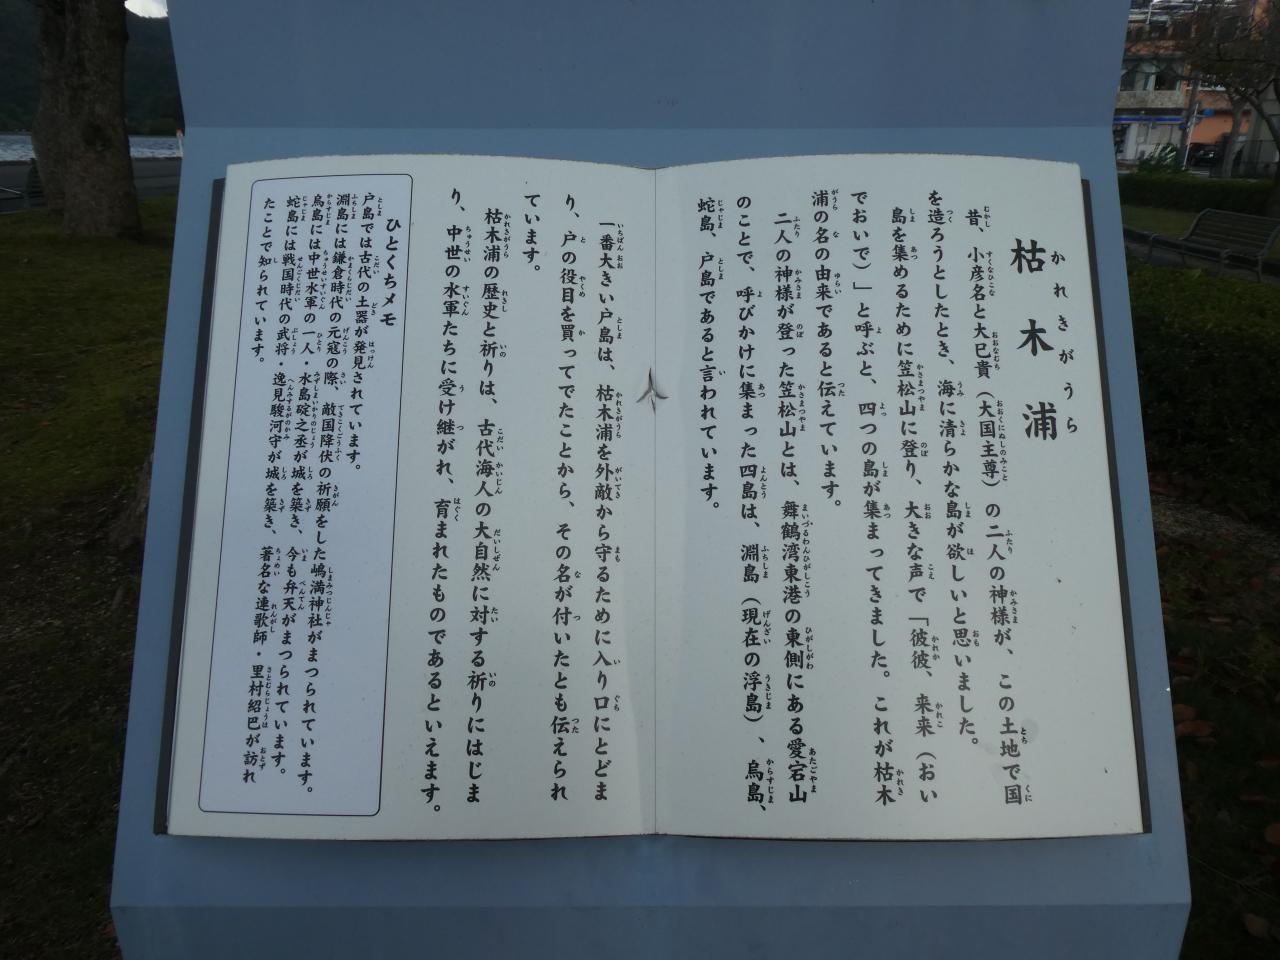 枯木浦
昔、小彦名と大巳貴（大国主尊）の二人の神様が、この土地で国
を造ろうとしたとき、海に清らかな島が欲しいと思いました。
島を集めるために笠松山に登り、大きな声で「彼彼、来来（おい
でおいで）」と呼ぶと、四つの島が集まってきました。これが枯木
浦の名の由来であると伝えています。
二人の神様が登った笠松山とは、舞鶴湾東港の東側にある愛宕山
のことで、呼びかけに集まった四島は、淵島（現在の浮島）、烏島、
蛇島、戸島であると言われています。
一番大きい戸島は、枯木浦を外敵から守るために入り口にとどま
り、戸の役目を買ってでたことから、その名が付いたとも伝えられ
ています。
枯木浦の歴史と祈りは、古代海人の大自然に対する祈りにはじま
り、中世の水軍たちに受け継がれ、育まれたものであるといえます。
ひとくちメモ
戸島では古代の土器が発見されています。
淵島には鎌倉時代の元寇の際、敵国降伏の祈願をした嶋満神社がまつられています。
烏島には中世水軍の一人・水島碇之丞が城を築き、今も弁天がまつられています。
蛇島には戦国時代の武将・逸見駿河守が城を築き、著名な連歌師・里村紹巴が訪れ
たことで知られています。